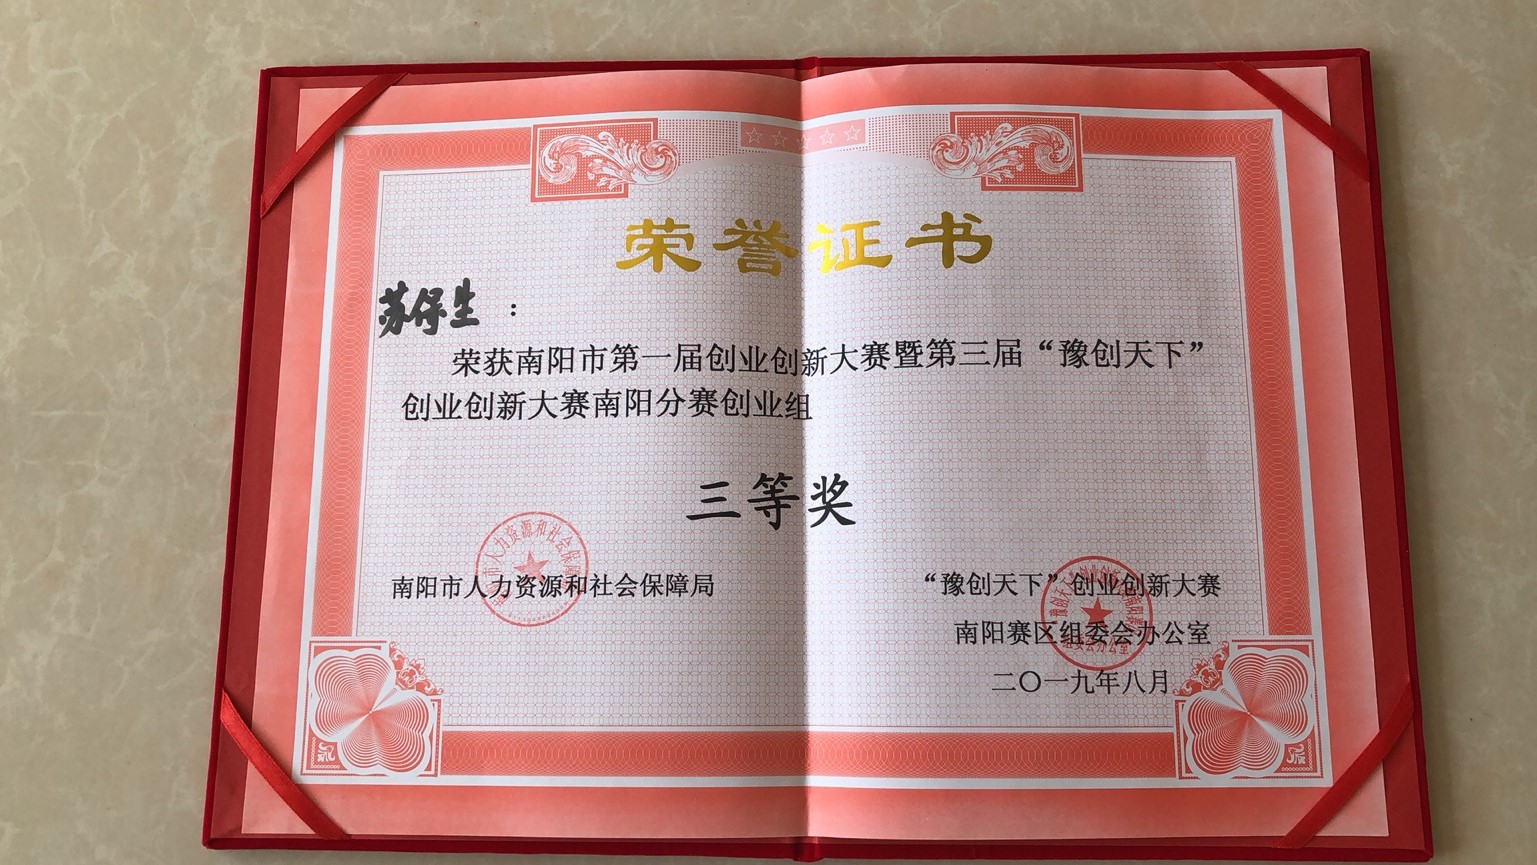 荣誉证书
苏保生：
荣获南阳市第一届创业创新大赛暨第三届“豫创天下”
创业创新大赛南阳分赛创业组
三等奖
南阳市人力资源和社会保障局
“豫创天下”创业创新大赛
南阳赛区组委会办公室
二〇一九年八月